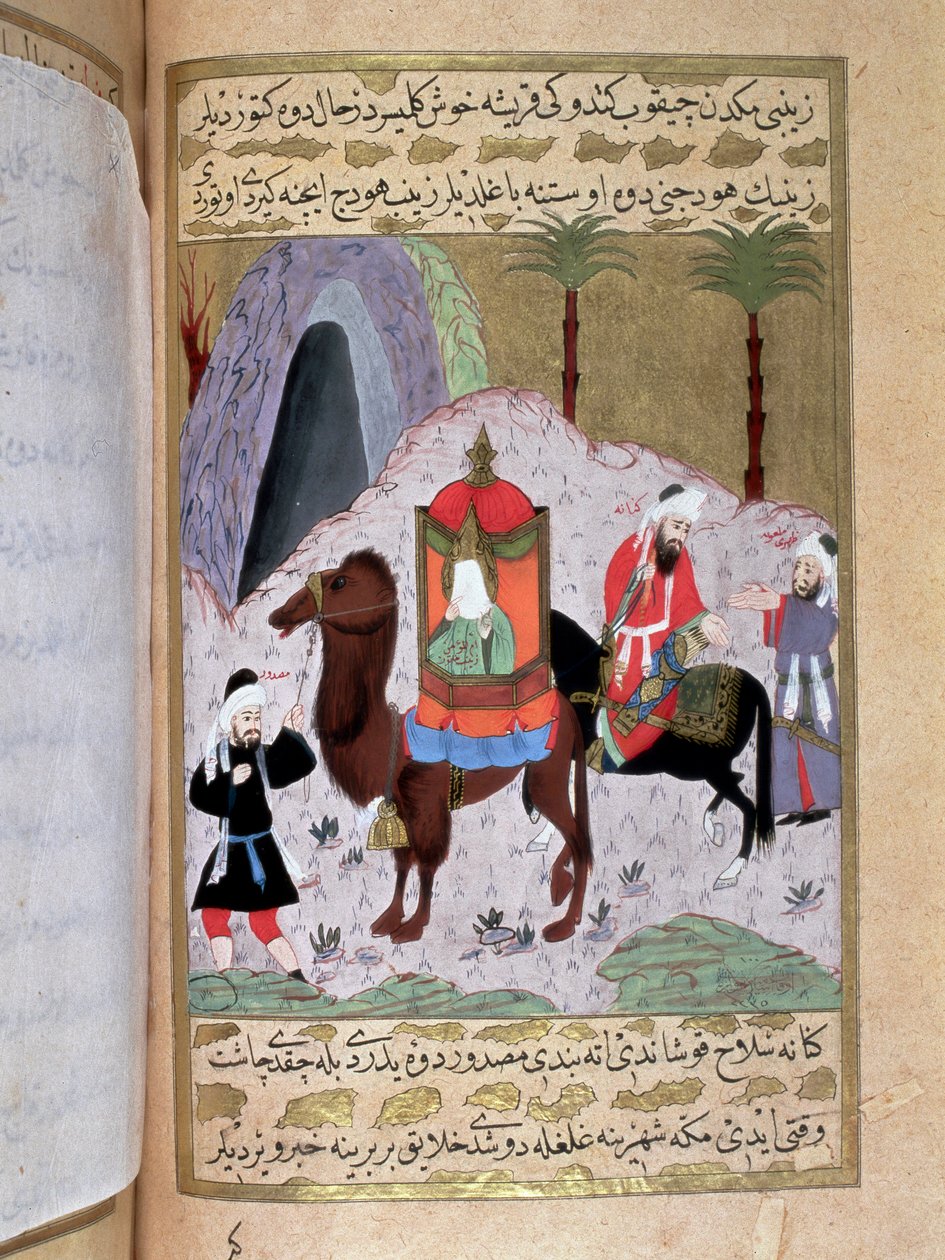 زینبی مکدن چیقوب کتدوکی قریشه خوش کلمیسر درحال دوه کتوردیلر
زینبك هودجنی دوه اوستنه باغلدیلر زینب هودج ایچنه کیردی اوتوردی
کنانه
ملعونه
مصدور
ام المؤمنین
زینب
کنانه سلاح قوشاندی اته بندی مصدور دوه یدردی بله چقدی چاشت
وقتی ایدی مکّه شهرینه غلغله دوشدی خلایق بربرینه خبر ویردیلر